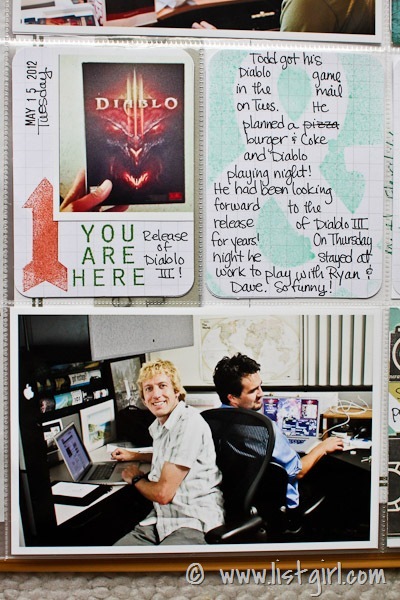 MAY 15 2012
Tuesday
DIABLO
YOU
ARE
HERE
Release
of
Diablo
III!
Todd got his
Diablo game
in the mail
on Tues. He
planned a pizza
burger & Coke
and Diablo
playing night!
He had been looking
forward to the
release of Diablo III
for years! On Thursday
night he stayed at
work to play with Ryan &
Dave! So funny!
© www.listgirl.com